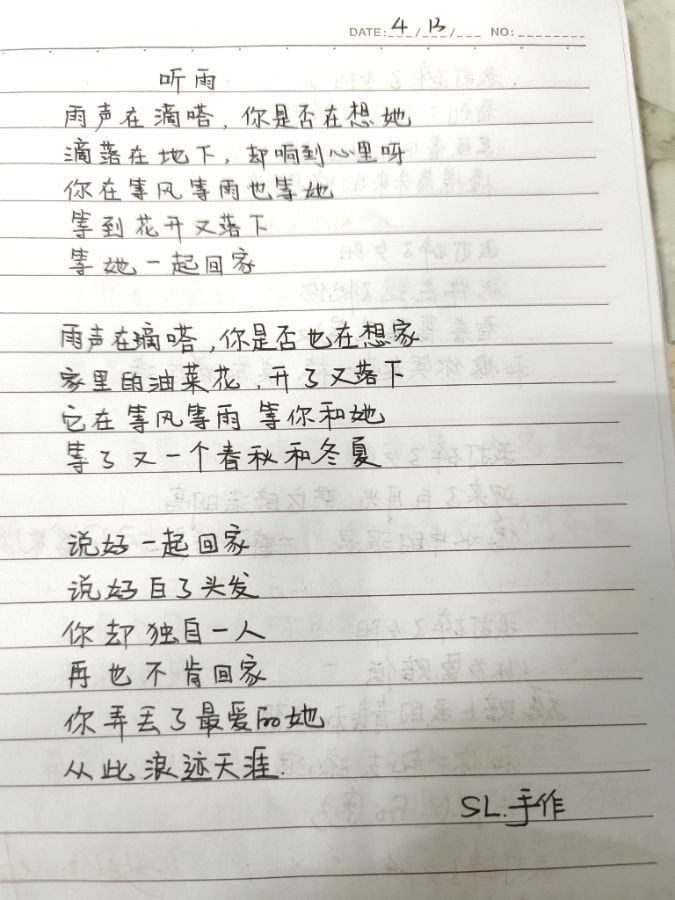 DATE: 4/13/ NO:
听雨
雨声在滴嗒，你是否在想她
滴落在地下，却响到心里呀
你在等风等雨也等她
等到花开又落下
等她一起回家
雨声在滴嗒，你是否也在想家
家里的油菜花，开了又落下
它在等风等雨 等你和她
等了又一个春秋和冬夏
说好一起回家
说好白了头发
你却独自一人
再也不肯回家
你弄丢了最爱的她
从此浪迹天涯.
SL.手作